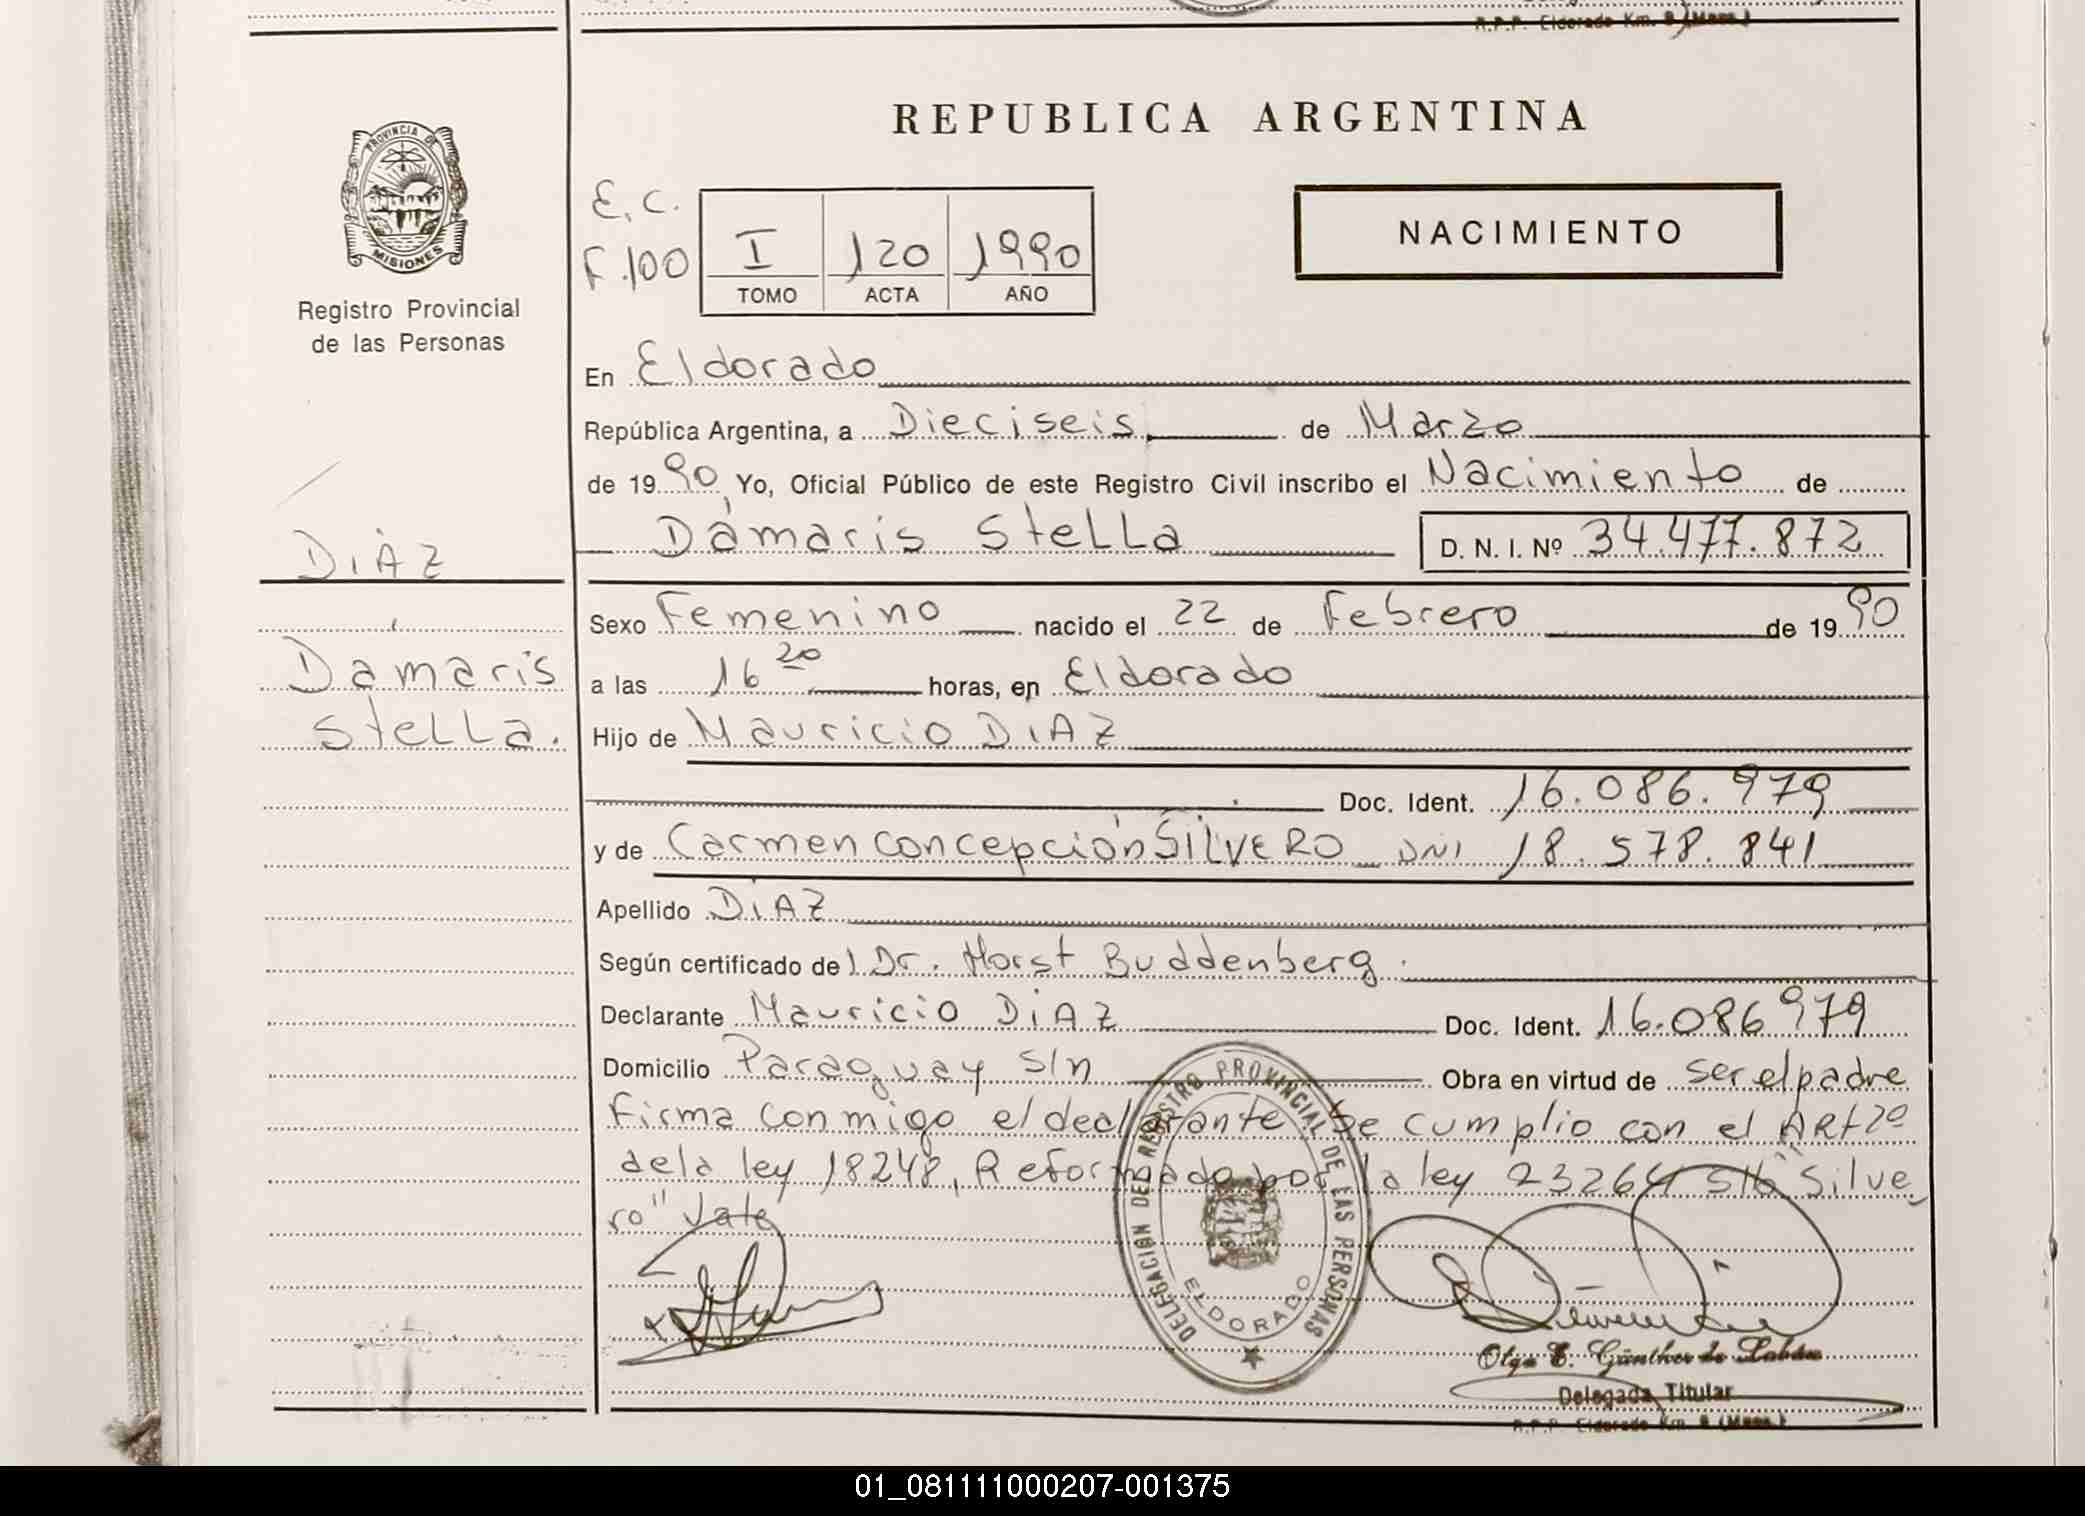 R.P.P. Eldorado Km. 9 (Mnes.)
REPUBLICA ARGENTINA
PROVINCIA DE MISIONES
Registro Provincial
de las Personas
E.C.
F.100
I 120 1990
TOMO ACTA AÑO
NACIMIENTO
En Eldorado
República Argentina, a Dieciseis de Marzo
de 1990 Yo, Oficial Público de este Registro Civil inscribo el Nacimiento de
Dámaris Stella D. N. I. Nº 34.477.872
DIAZ
Dámaris
Stella.
Sexo Femenino nacido el 22 de Febrero de 1990
a las 16 20 horas, en Eldorado
Hijo de Mauricio DIAZ
Doc. Ident. 16.086.979
y de Carmen Concepción SILVERO DNI 18.578.841
Apellido DIAZ
Según certificado del Dr. Horst Buddenberg.
Declarante Mauricio DIAZ Doc. Ident. 16.086979
Domicilio Paraguay S/n Obra en virtud de ser el padre
Firma conmigo el declarante Se cumplio con el ARt 2º
de la ley 18248, Reformado por la ley 23264 S/b "Silve
ro" Vale
DELEGACION DEL REGISTRO PROVINCIAL DE LAS PERSONAS
ELDORADO
Olga E. Günther de
Delegada Titular
R.P.P. Eldorado Km. 9 (Mnes.)
01_081111000207-001375